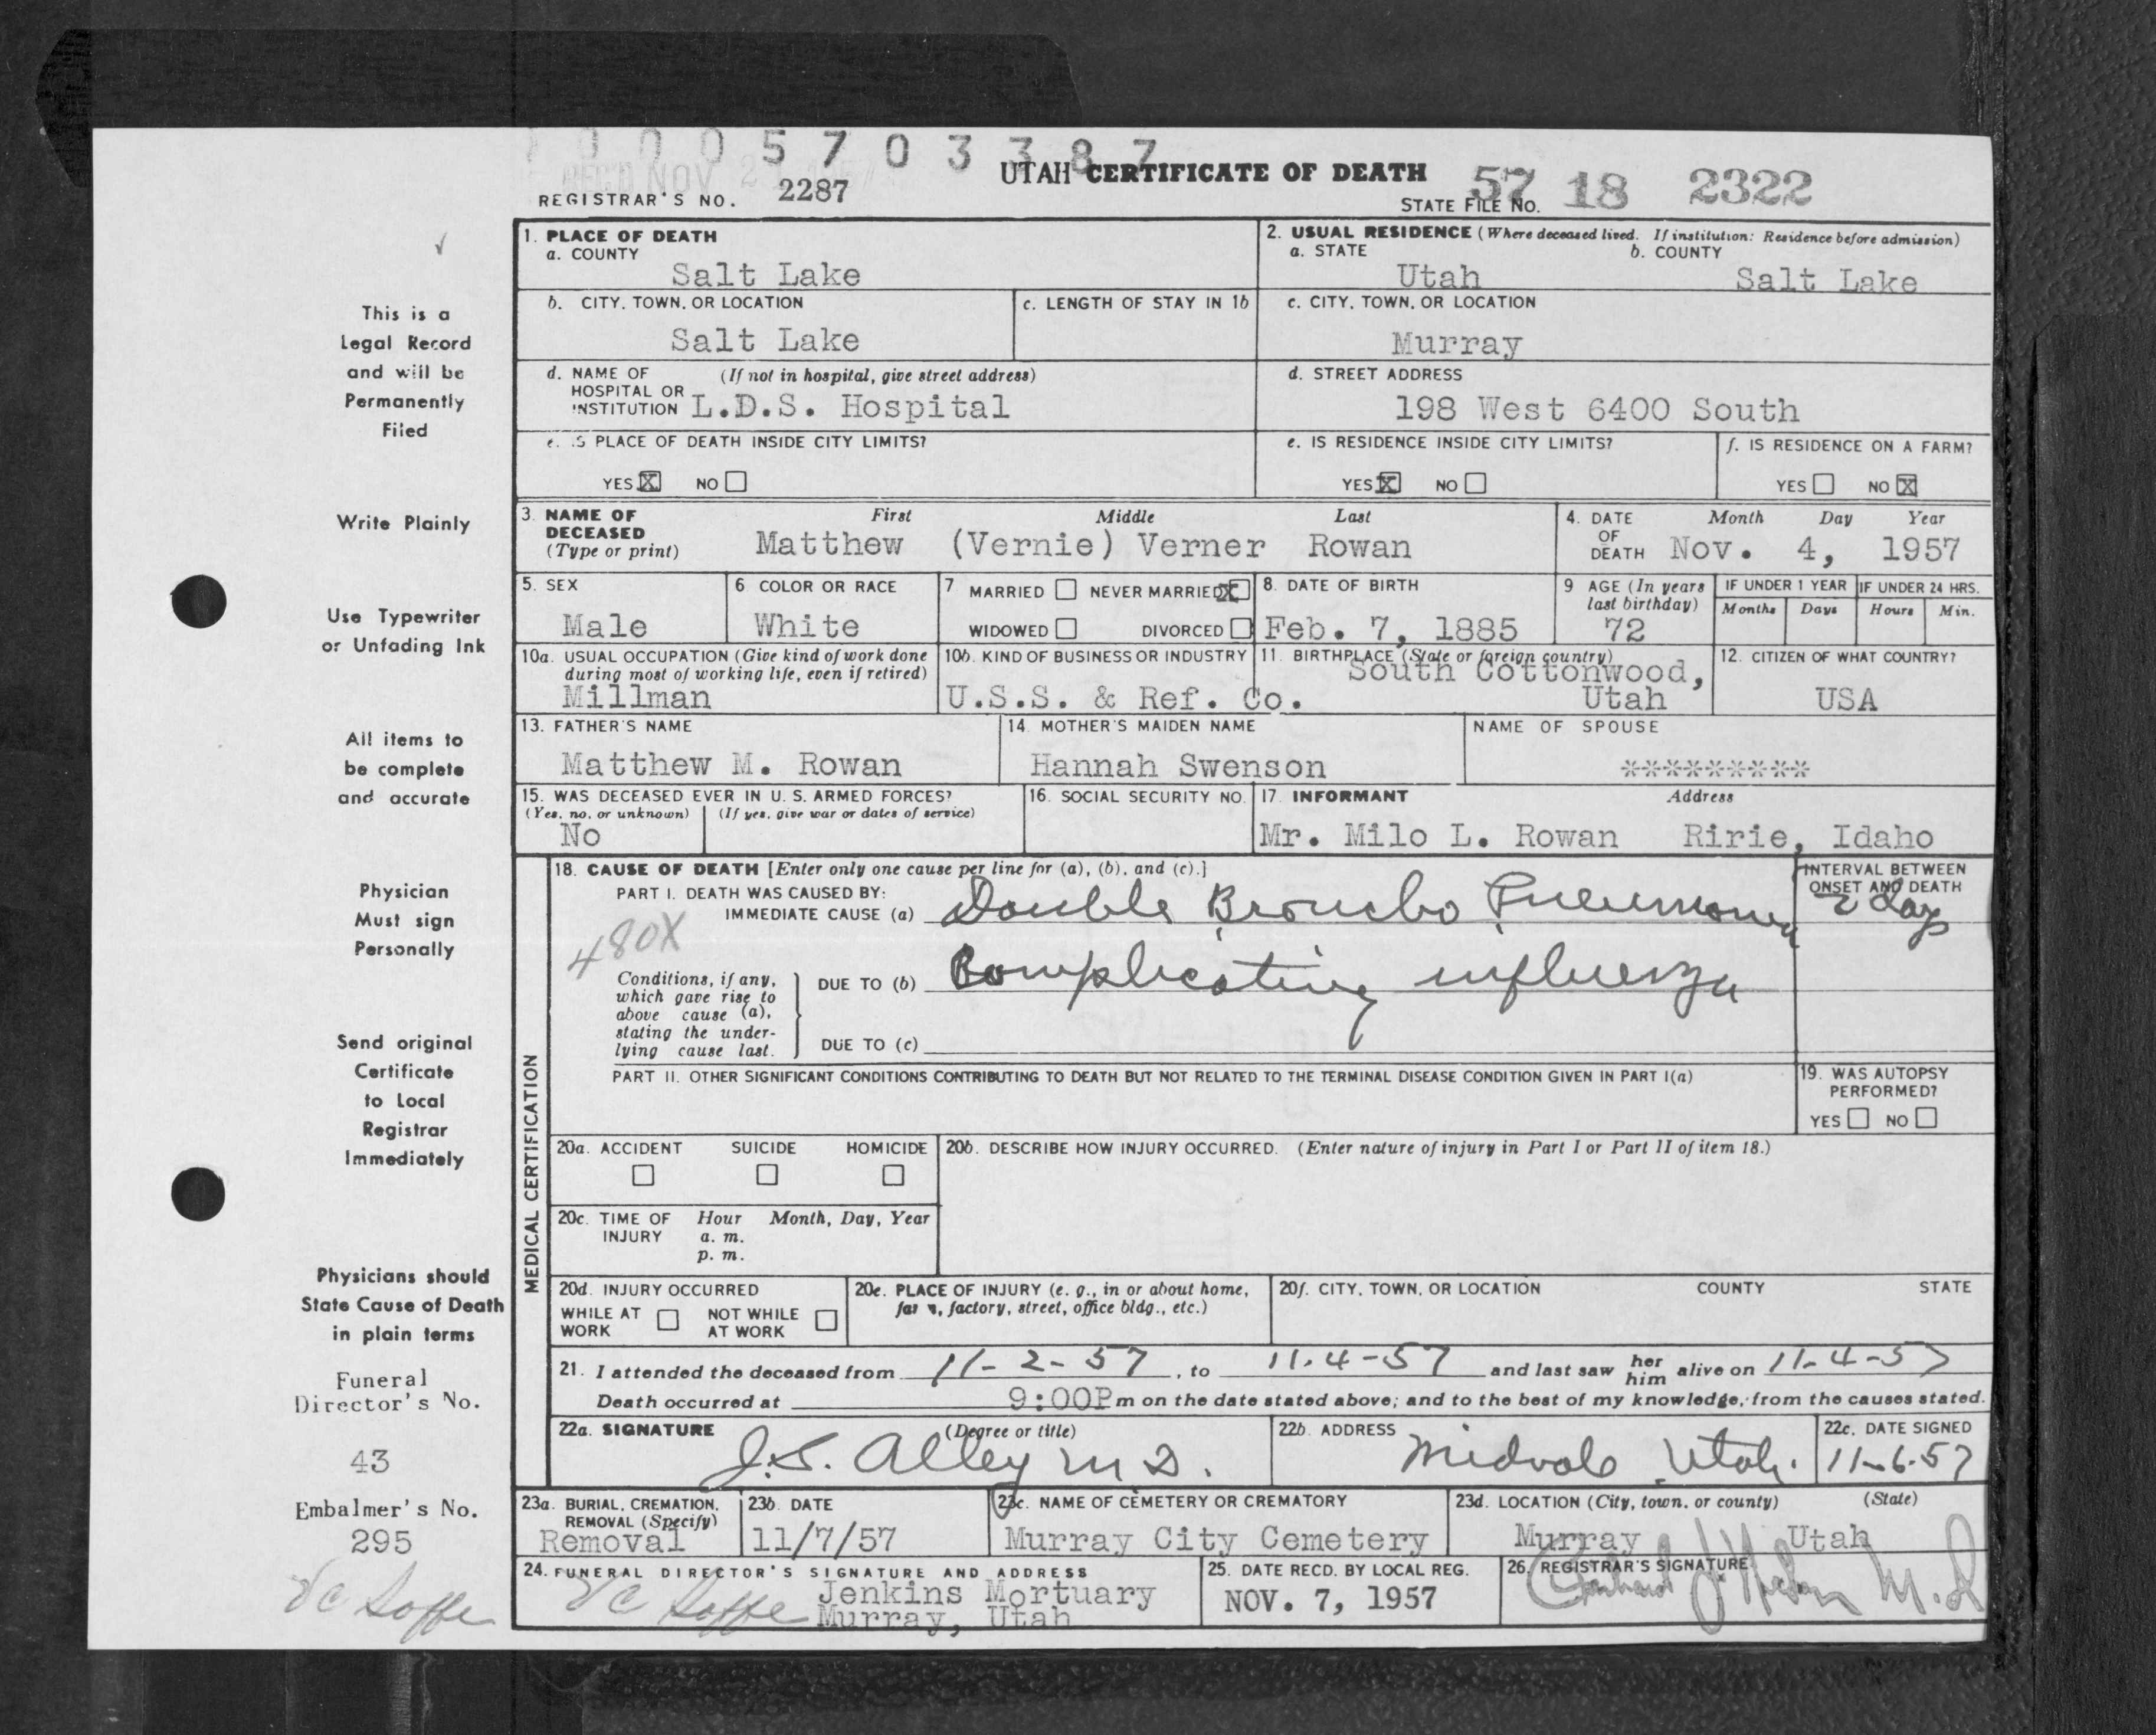 0 0 0 5 7 0 3 3 8 7
REC'D NOV 2
UTAH CERTIFICATE OF DEATH
REGISTRAR'S NO. 2287
STATE FILE NO. 57 18 2322
✓
This is a
Legal Record
and will be
Permanently
Filed
Write Plainly
Use Typewriter
or Unfading Ink
All items to
be complete
and accurate
Physician
Must sign
Personally
Send original
Certificate
to Local
Registrar
Immediately
Physicians should
State Cause of Death
in plain terms
Funeral
Director's No.
43
Embalmer's No.
295
1. PLACE OF DEATH
a. COUNTY
Salt Lake
2. USUAL RESIDENCE (Where deceased lived. If institution: Residence before admission)
a. STATE b. COUNTY
Utah Salt Lake
b. CITY, TOWN, OR LOCATION
Salt Lake
c. LENGTH OF STAY IN 1b
c. CITY, TOWN, OR LOCATION
Murray
d. NAME OF (If not in hospital, give street address)
HOSPITAL OR
INSTITUTION L.D.S. Hospital
d. STREET ADDRESS
198 West 6400 South
e. IS PLACE OF DEATH INSIDE CITY LIMITS?
YES X NO
e. IS RESIDENCE INSIDE CITY LIMITS?
YES X NO
f. IS RESIDENCE ON A FARM?
YES NO X
3. NAME OF First Middle Last
DECEASED
(Type or print) Matthew (Vernie) Verner Rowan
4. DATE Month Day Year
OF
DEATH Nov. 4, 1957
5. SEX
Male
6 COLOR OR RACE
White
7 MARRIED NEVER MARRIED X
WIDOWED DIVORCED
8. DATE OF BIRTH
Feb. 7, 1885
9 AGE (In years
last birthday)
72
IF UNDER 1 YEAR
Months Days
IF UNDER 24 HRS.
Hours Min.
10a. USUAL OCCUPATION (Give kind of work done
during most of working life, even if retired)
Millman
10b. KIND OF BUSINESS OR INDUSTRY
U.S.S. & Ref. Co.
11. BIRTHPLACE (State or foreign country)
South Cottonwood,
Utah
12. CITIZEN OF WHAT COUNTRY?
USA
13. FATHER'S NAME
Matthew M. Rowan
14. MOTHER'S MAIDEN NAME
Hannah Swenson
NAME OF SPOUSE
*********
15. WAS DECEASED EVER IN U. S. ARMED FORCES?
(Yes, no, or unknown) (If yes, give war or dates of service)
No
16. SOCIAL SECURITY NO.
17. INFORMANT Address
Mr. Milo L. Rowan Ririe, Idaho
MEDICAL CERTIFICATION
18. CAUSE OF DEATH [Enter only one cause per line for (a), (b), and (c).]
PART I. DEATH WAS CAUSED BY:
IMMEDIATE CAUSE (a) Double Broncho Pneumonia
INTERVAL BETWEEN
ONSET AND DEATH
2 days
480X
Conditions, if any,
which gave rise to
above cause (a),
stating the under-
lying cause last.
DUE TO (b) Complicating influenza
DUE TO (c)
PART II. OTHER SIGNIFICANT CONDITIONS CONTRIBUTING TO DEATH BUT NOT RELATED TO THE TERMINAL DISEASE CONDITION GIVEN IN PART I(a)
19. WAS AUTOPSY
PERFORMED?
YES NO
20a. ACCIDENT SUICIDE HOMICIDE
20b. DESCRIBE HOW INJURY OCCURRED. (Enter nature of injury in Part I or Part II of item 18.)
20c. TIME OF Hour Month, Day, Year
INJURY a. m.
p. m.
20d. INJURY OCCURRED
WHILE AT NOT WHILE
WORK AT WORK
20e. PLACE OF INJURY (e. g., in or about home,
farm, factory, street, office bldg., etc.)
20f. CITY, TOWN, OR LOCATION COUNTY STATE
21. I attended the deceased from 11-2-57, to 11-4-57 and last saw her him alive on 11-4-57
Death occurred at 9:00P m on the date stated above; and to the best of my knowledge, from the causes stated.
22a. SIGNATURE (Degree or title)
J.S. Alley M D.
22b. ADDRESS
Midvale Utah.
22c. DATE SIGNED
11-6-57
23a. BURIAL, CREMATION,
REMOVAL (Specify)
Removal
23b. DATE
11/7/57
23c. NAME OF CEMETERY OR CREMATORY
Murray City Cemetery
23d. LOCATION (City, town, or county) (State)
Murray Utah
24. FUNERAL DIRECTOR'S SIGNATURE AND ADDRESS
Jenkins Mortuary
Murray, Utah
25. DATE RECD. BY LOCAL REG.
NOV. 7, 1957
26. REGISTRAR'S SIGNATURE
M.D